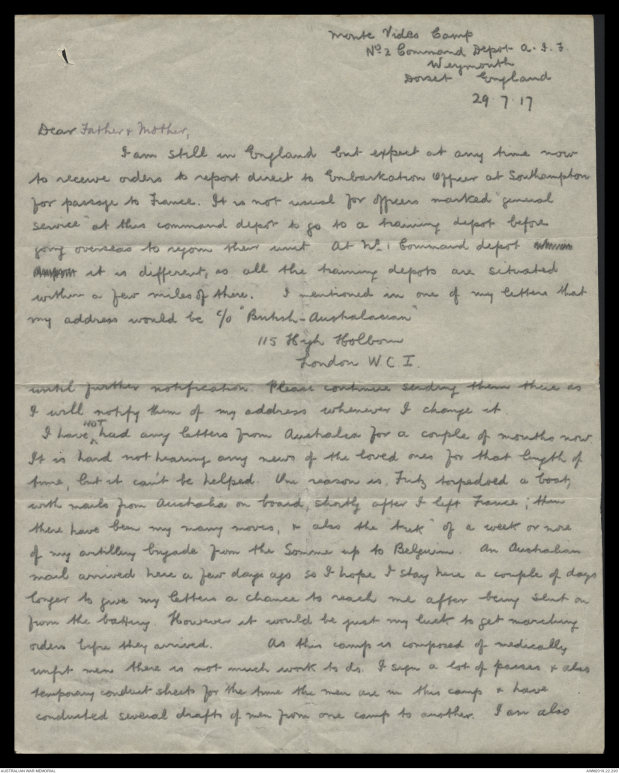 Monte Video Camp
No 2 Command Depot A.I.F.
Weymouth
Dorset England
29.7.17
Dear Father & Mother,
I am still in England but expect at any time now
to receive orders to report direct to Embarkation Officer at Southampton
for passage to France. It is not usual for officers marked "general
service" at this command depot to go to a training depot before
going overseas to rejoin their unit. At No 1 Command depot
it is different, as all the training depots are situated
within a few miles of there. I mentioned in one of my letters that
my address would be c/o "British-Australasian"
115 High Holborn
London W.C.1.
until further notification. Please continue sending them there as
I will notify them of my address whenever I change it
I have NOT had any letters from Australia for a couple of months now
It is hard not hearing any news of the loved ones for that length of
time, but it can't be helped. One reason is, Fritz torpedoed a boat,
with mails from Australia on board, shortly after I left France; then
there have been my many moves, & also the "trek" of a week or more
of my artillery brigade from the Somme up to Belgium. An Australian
mail arrived here a few days ago so I hope I stay here a couple of days
longer to give my letters a chance to reach me after being sent on
from the battery. However it would be just my luck to get marching
orders before they arrived. As this camp is composed of medically
unfit men there is not much work to do. I sign a lot of passes & also
temporary conduct sheets for the time the men are in this camp & have
conducted several drafts of men from one camp to another. I am also
AUSTRALIAN WAR MEMORIAL